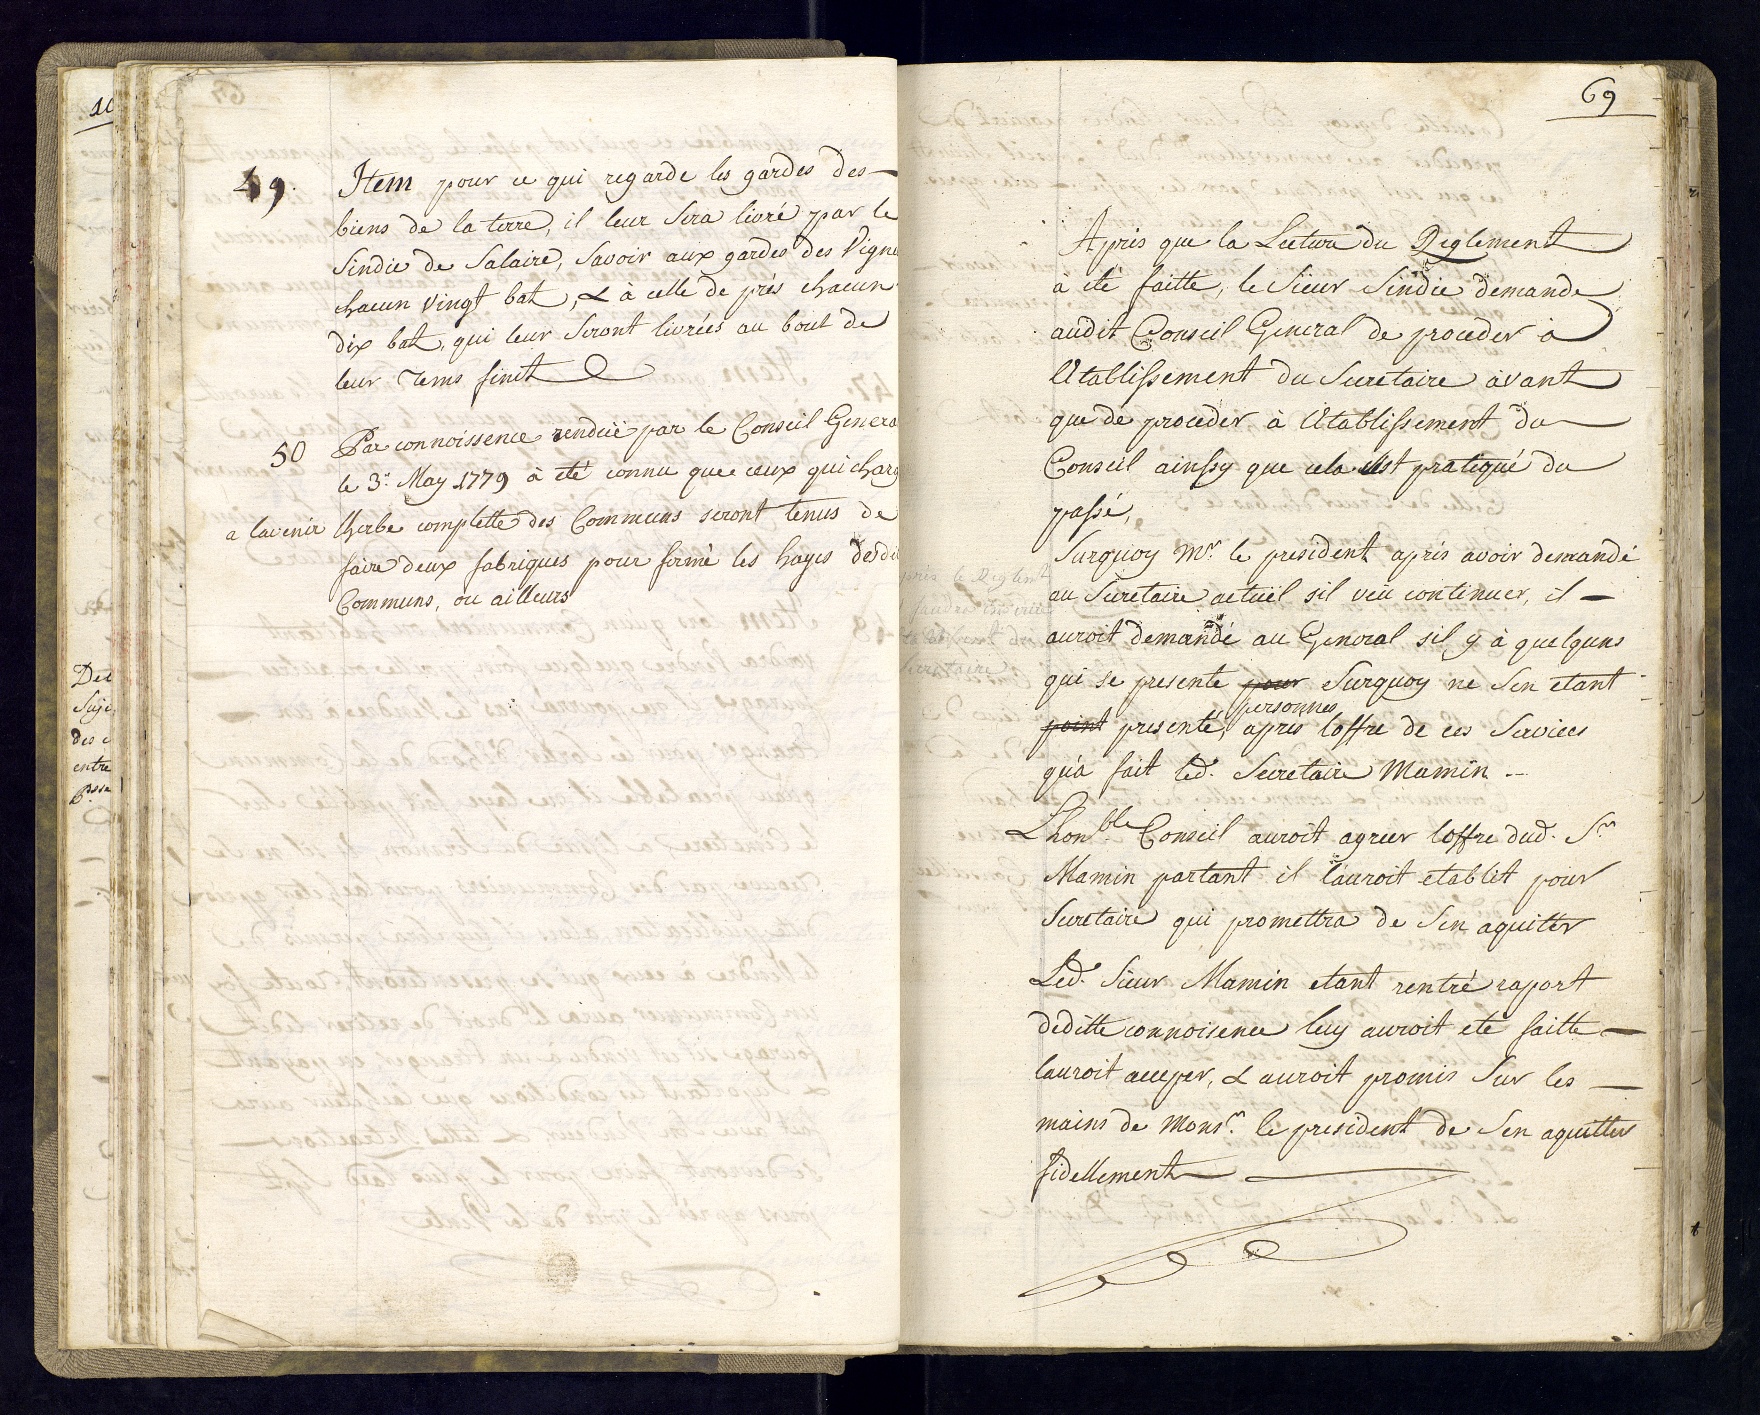 49. Item pour ce qui regarde les gardes des
biens de la terre, il leur sera livré par le
Sindic de Salaire, Savoir aux gardes des Vigne
chacun vingt bat, & à celle de prés chacun
dix bat, qui leur seront livrées au bout de
leur tems finit
50 Par connoissence rendüe par le Conseil Genera
le 3e. May 1779 à eté connu que ceux qui charg
a lavenir lherbe complette des Communs seront tenus de
faire deux fabriques pour fermé les hayes desdi
Communs, ou ailleurs
10
Det
Suje
des
entre
69
Apres que la Lecture du Reglement
à eté faitte, le Sieur Sindic demande
audit Conseil General de proceder à
létablissement du Secretaire avant
que de proceder à létablissement du
Conseil ainssy que cela est pratiqué du
passé,
Surquoy Mr. le president apres avoir demandé
au Secretaire actuel sil veu continuer, il
auroit demandé au General sil y à quelquns
qui se presente pour Surquoy ne sen etant
personnes
point presenté, apres loffre de ces Services
qua fait led. Secretaire Mamin
Lhonble Conseil auroit agreer loffre dud. Sr.
Mamin partant il lauroit etablit pour
Secretaire qui promettra de sen aquitter
Led. Sieur Mamin etant rentré raport
deditte connoisence luy auroit eté faitte
lauroit accepter, & auroit promis sur les
mains de Monsr. le president de sen aquitter
fidellement
le Reglemt
Secretaire